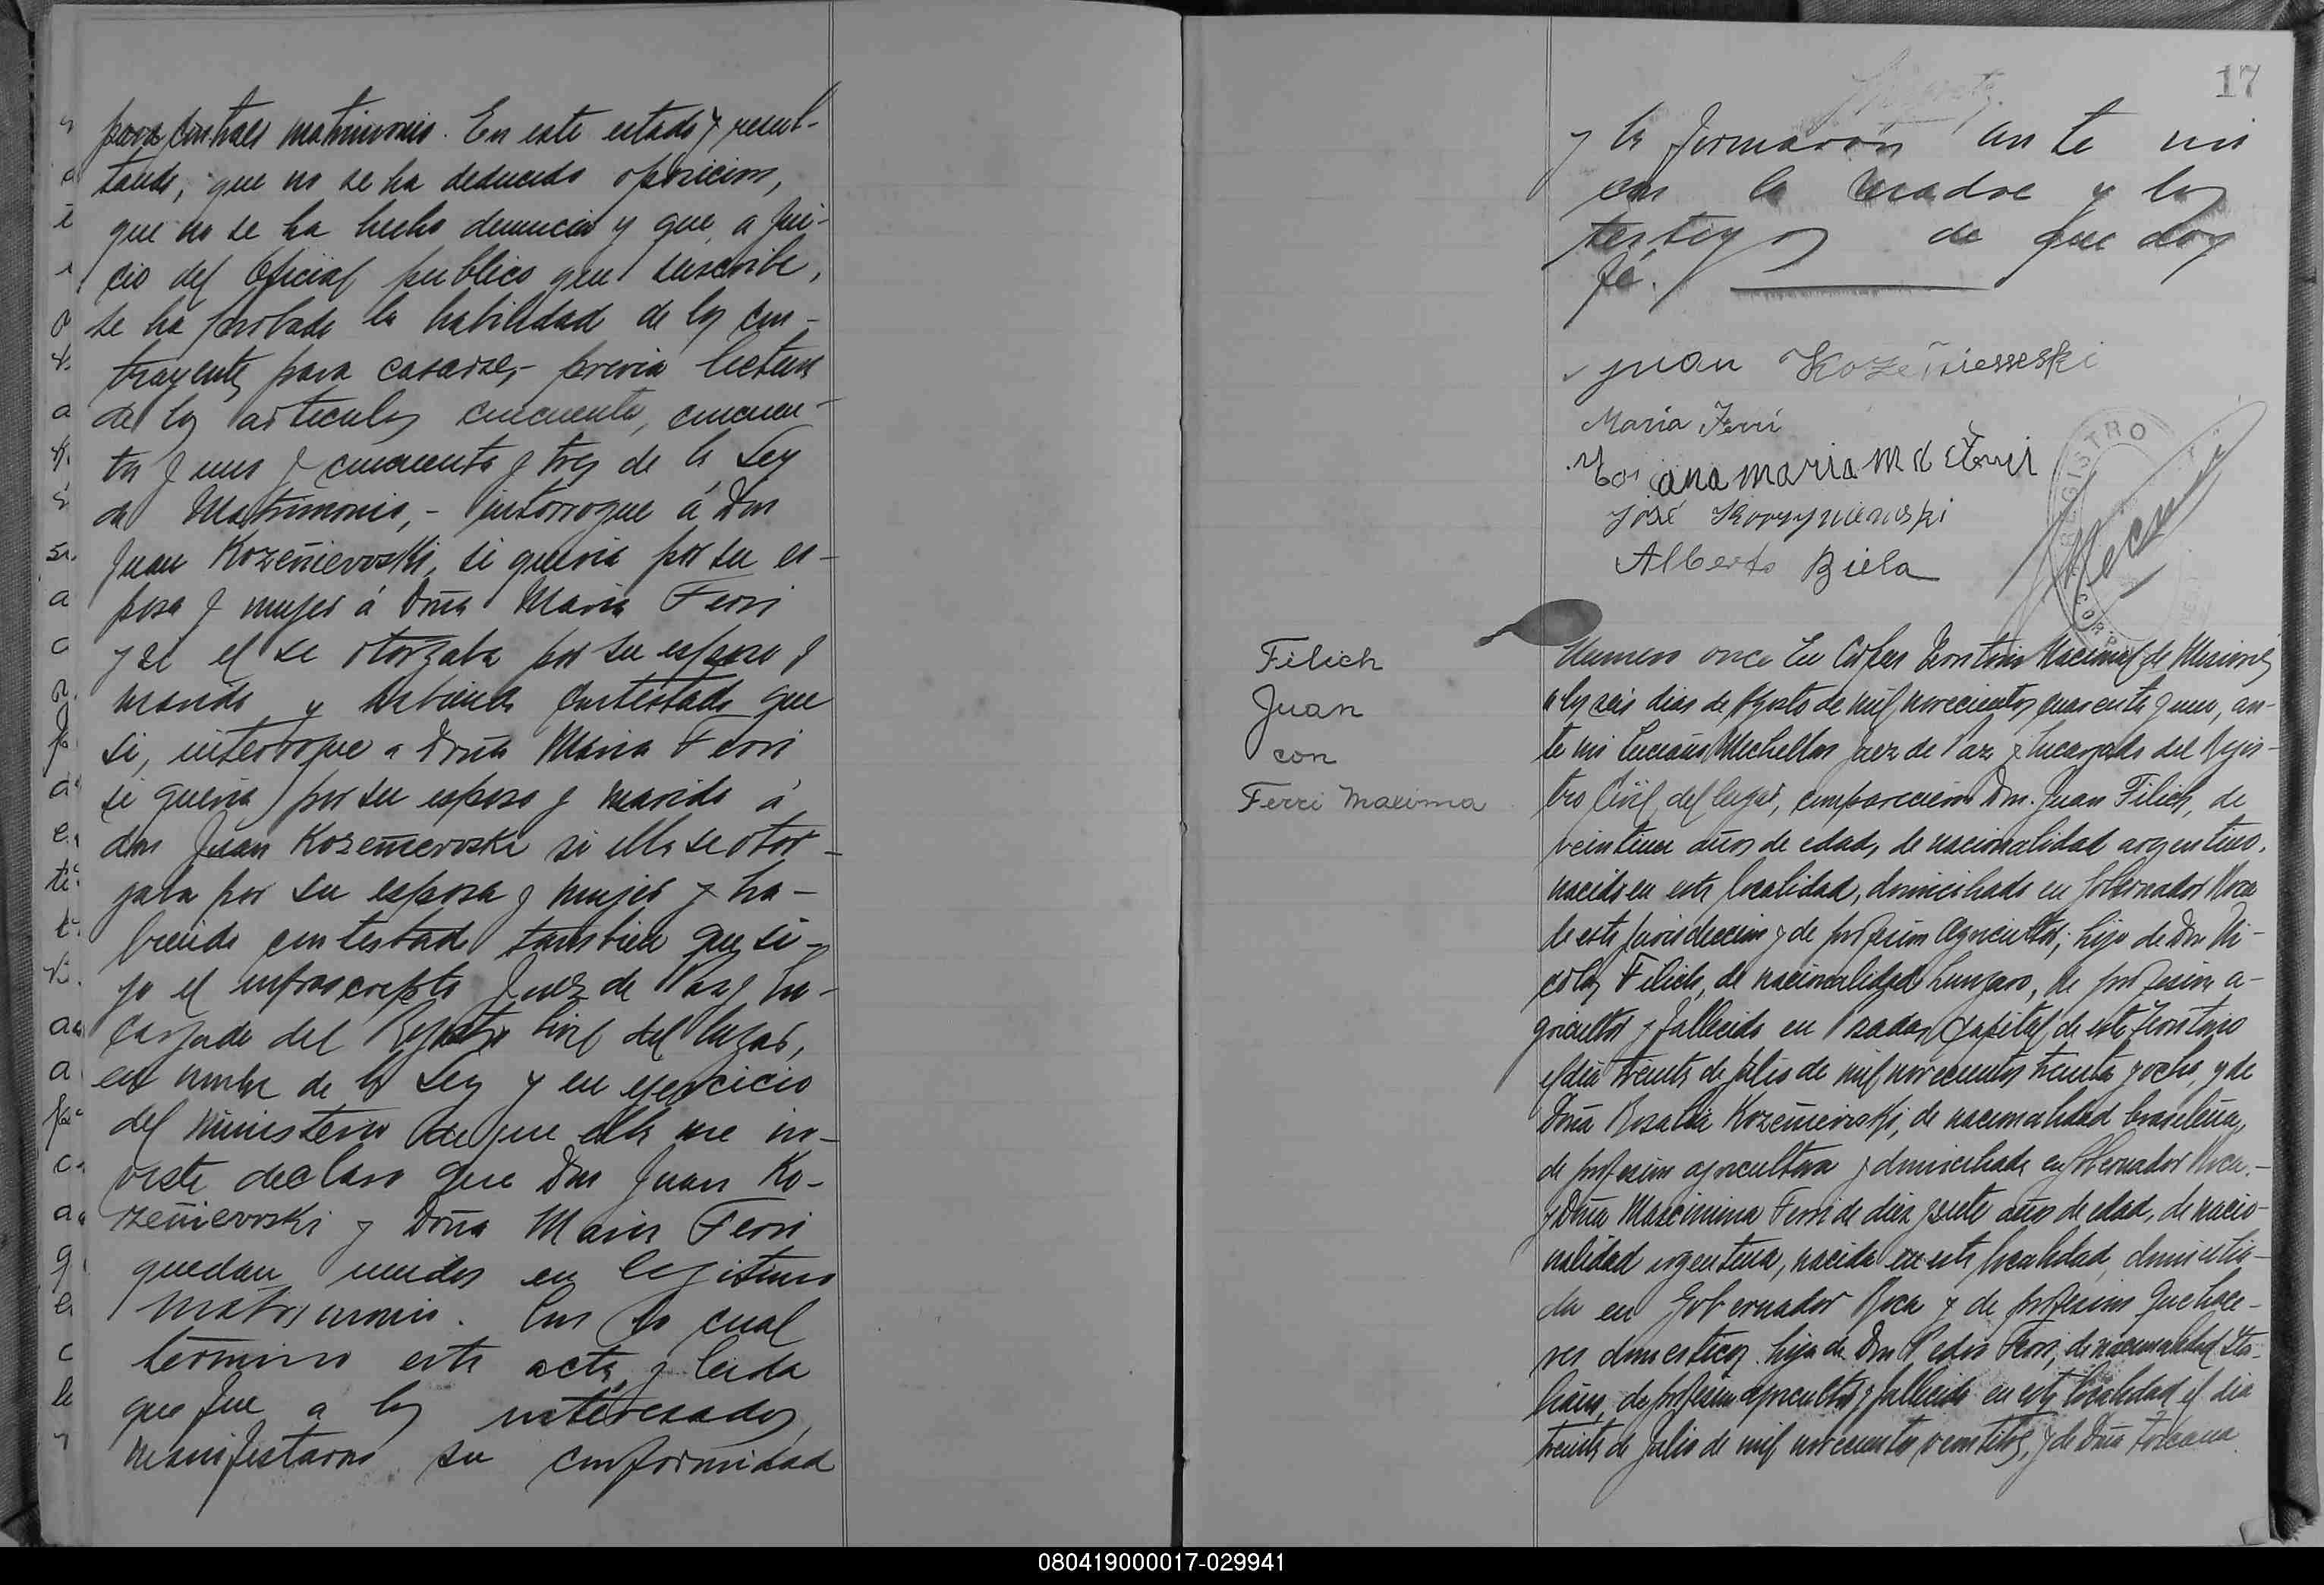 para contraer matrimonio. En este estado y resul-
tando, que no se ha deducido oposicion,
que no se ha hecho denuncia y que, a jui-
cio del Oficial publico que suscribe,
se ha probado la habilidad de los con-
trayentes para casarse,- previa lectura
de los articulos cincuenta, cincuen-
ta y uno y cincuenta y tres de la Ley
de Matrimonio,- interrogue á Don
Juan Kozeñievoski, si queria por su es-
posa y mujer á Doña Maria Ferri
y si el se otorgaba por su esposo y
marido y habiendo contestado que
si, interrogue a Doña Maria Ferri
si queria por su esposo y marido á
don Juan Kozeñievoski si ella se otor-
gaba por su esposa y mujer y ha-
biendo contestado tambien que si-
yo el infrascripto Juez de Paz y En-
cargado del Registro Civil del lugar,
en nombre de la Ley y en ejercicio
del ministerio de que ella me in-
viste declaro que Don Juan Ko-
zeñievoski y Doña Maria Ferri
quedan unidos en legitimo
matrimonio. Con lo cual
termino esta acta, y leida
que fue a los interesados,
manifestaron su conformidad
17
y la firmaron ante mi
con la madre y los
testigos de que doy
fé.
Juan Kozeñiesseski
Maria Ferri
ana maria M d Ferri
José
Alberto Biela
REGISTRO
CORP
Filich
Juan
con
Ferri Maxima
Numero once En Corpus Territorio Nacional de Misiones
a los seis dias de Agosto de mil novecientos cuarenta y uno, an-
te mi Luciano Mechellon Juez de Paz y Encargado del Regis-
tro Civil del lugar, comparecieron Don. Juan Filich, de
veintiun años de edad, de nacionalidad argentino,
nacido en esta localidad, domiciliado en Gobernador Roca
de esta jurisdiccion y de profesion agricultor, hijo de Don Ni-
colas Filich, de nacionalidad hungaro, de profesion a-
gricultor y fallecido en Posadas Capital de este Territorio
el dia treinta de julio de mil novecientos treinta y ocho, y de
Doña Rosalia Kozeñievoski, de nacionalidad brasileña,
de profesion agricultora y domiciliada en Gobernador Roca.-
y Doña Maxcimina Ferri de diez y siete años de edad, de nacio-
nalidad argentina, nacida en esta localidad, domicilia-
da en Gobernador Roca y de profesion quehace-
res domesticos hija de Don Pedro Ferri, de nacionalidad Ita-
liano, de profesion agricultor y fallecido en esta localidad el dia
treinta de Julio de mil novecientos veintitres, y de Doña